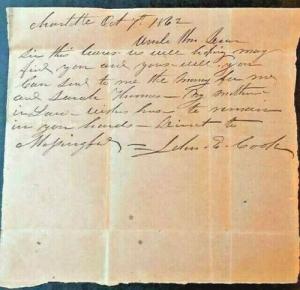 Charlotte Oct 7th 1862
Uncle Wm Dear
Sir this leaves us well hoping may
find you and yours well. you
Can send to me the money for me
and Sarah Thomas — My mother
in Law wishes hers to remain
in your hands —
John E. Cook